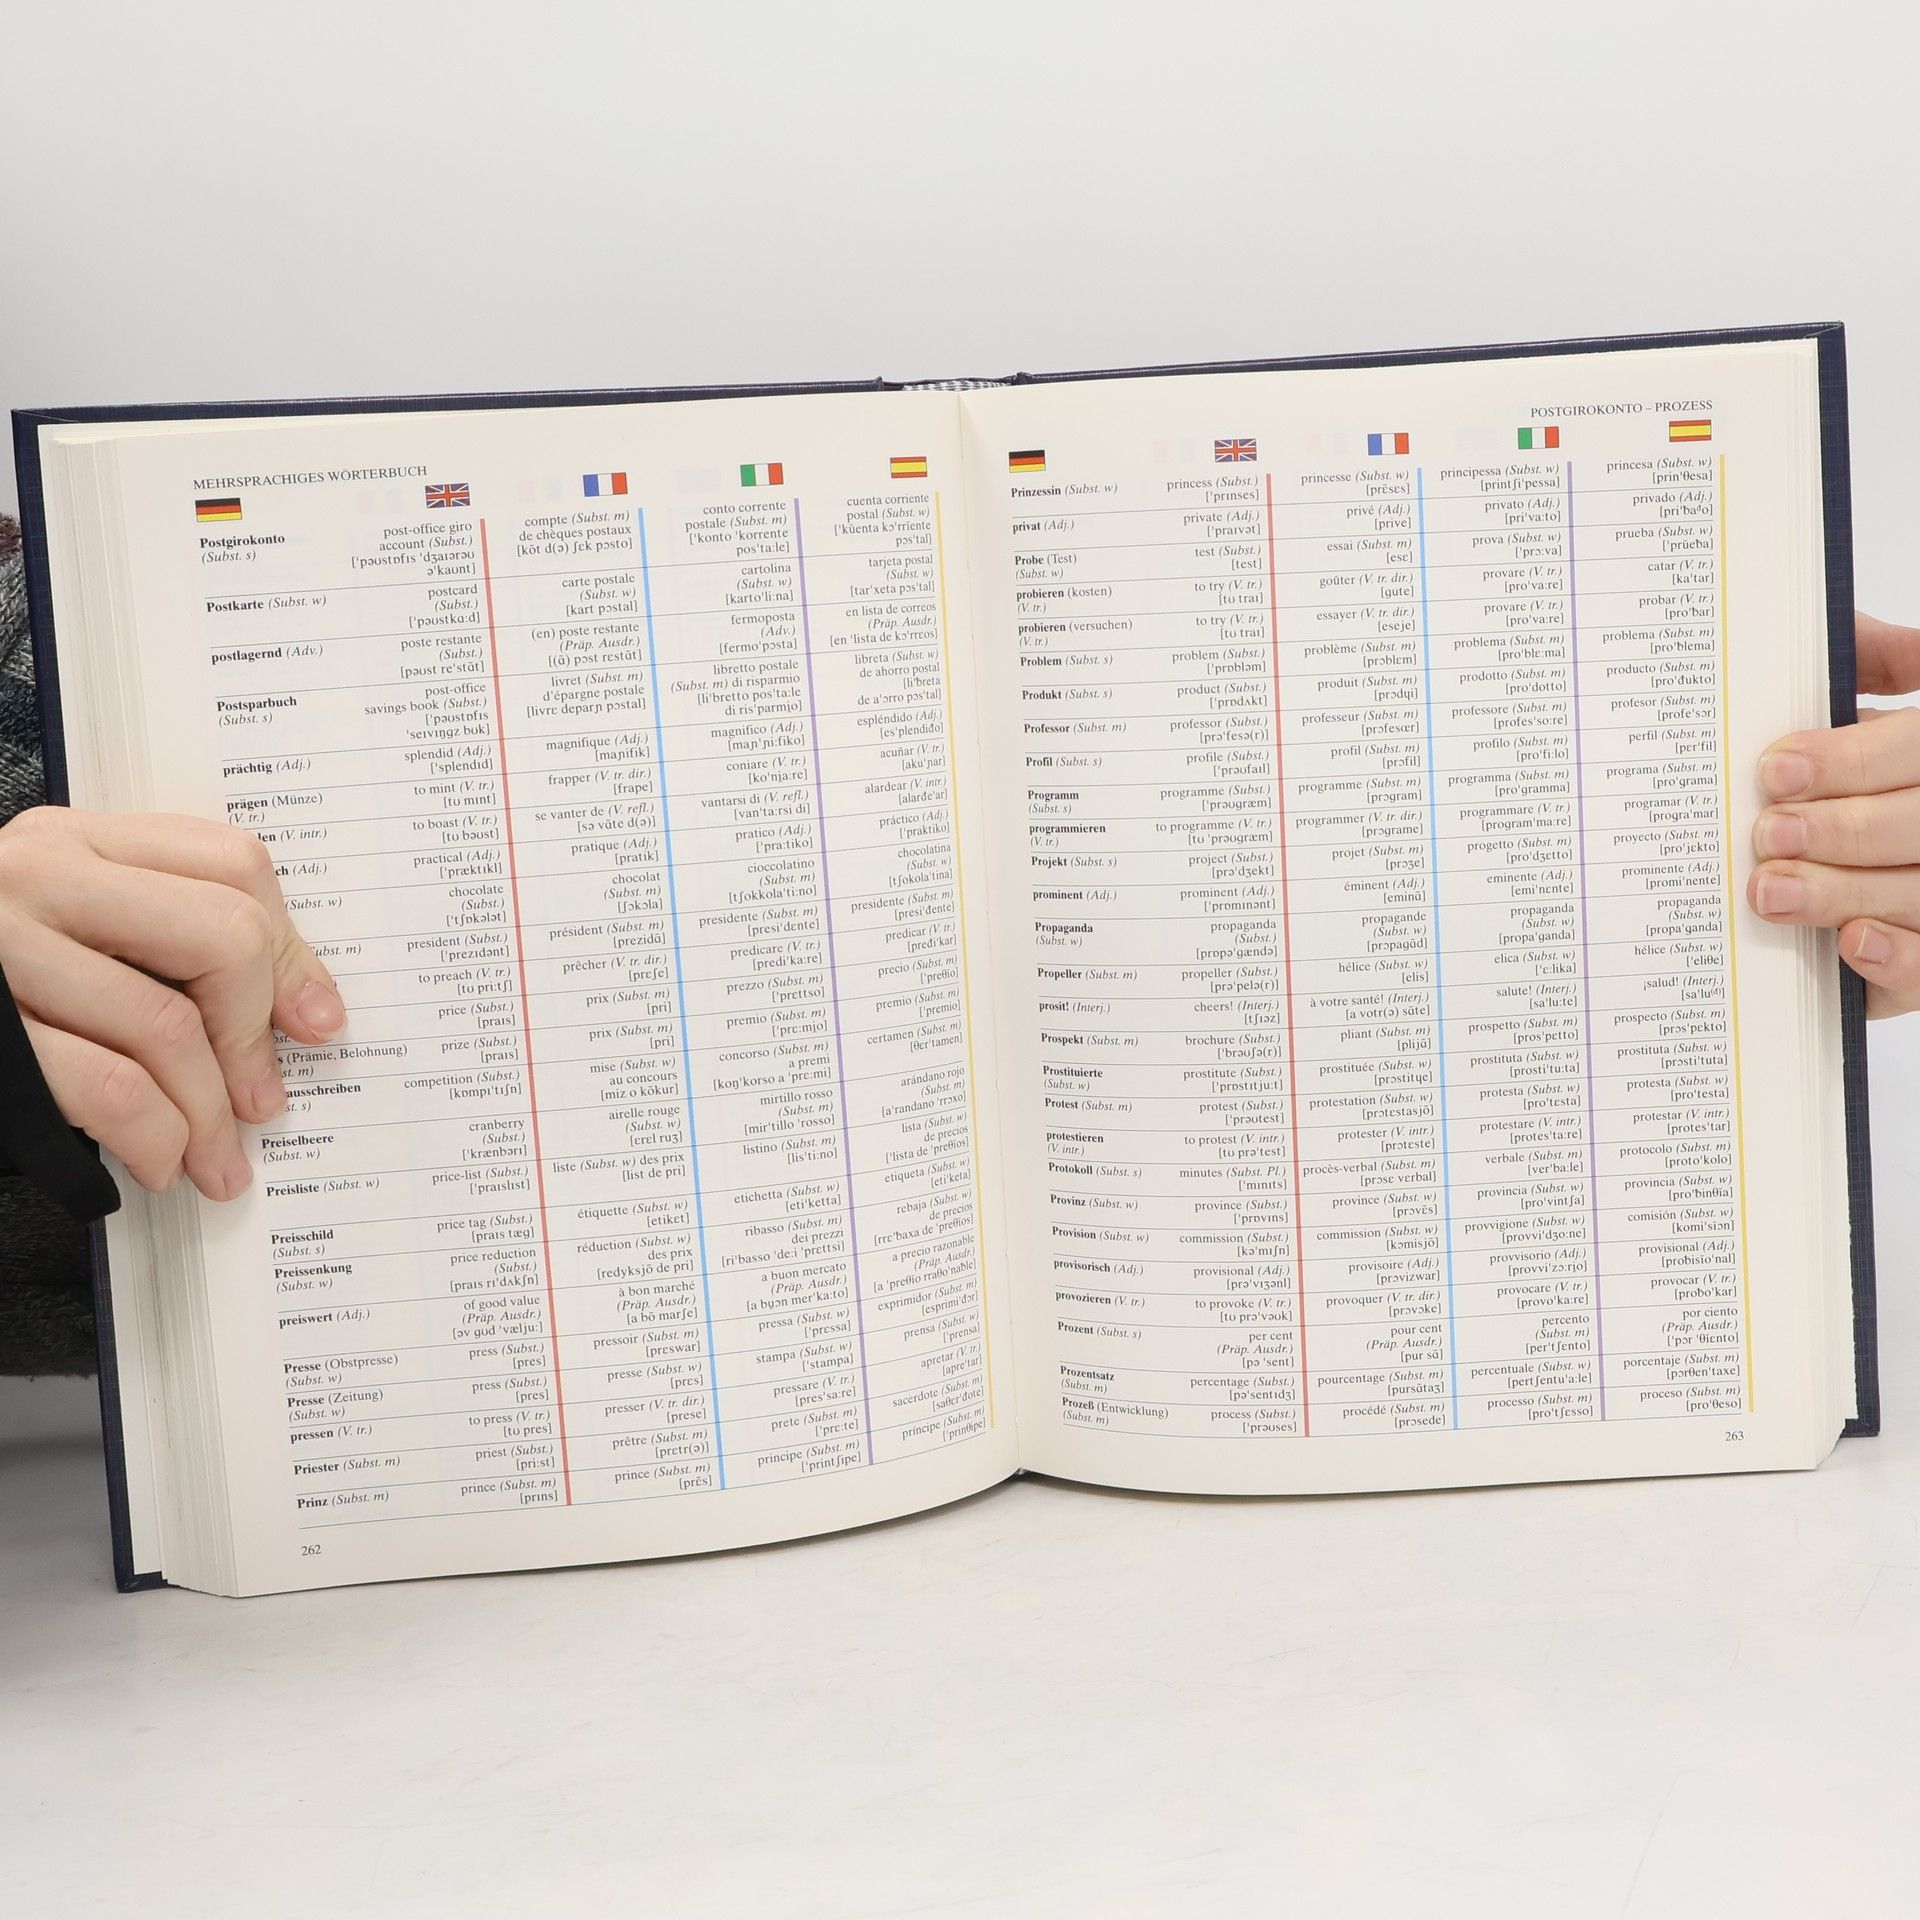 MEHRSPRACHIGES WÖRTERBUCH
Postgirokonto
(Subst. s)
post-office giro
account (Subst.)
['pəʊstɒfɪs 'dʒaɪərəʊ
ə'kaʊnt]
compte (Subst. m)
de chèques postaux
[kõt d(ə) ʃɛk pɔsto]
conto corrente
postale (Subst. m)
['konto 'korrente
pos'ta:le]
cuenta corriente
postal (Subst. w)
['kŭenta kɔ'rriente
pɔs'tal]
Postkarte (Subst. w)
postcard
(Subst.)
['pəʊstkɑ:d]
carte postale
(Subst. w)
[kart pɔstal]
cartolina
(Subst. w)
[karto'li:na]
tarjeta postal
(Subst. w)
[tar'xeta pɔs'tal]
postlagernd (Adv.)
poste restante
(Subst.)
[pəʊst re'stãt]
(en) poste restante
(Präp. Ausdr.)
[(ã) pɔst rɛstãt]
fermoposta
(Adv.)
[fermo'pɔsta]
en lista de correos
(Präp. Ausdr.)
[en 'lista de kɔ'rreos]
Postsparbuch
(Subst. s)
post-office
savings book (Subst.)
['pəʊstɒfɪs
'seɪvɪŋgz bʊk]
livret (Subst. m)
d'épargne postale
[livrɛ deparɲ pɔstal]
libretto postale
(Subst. m) di risparmio
[li'bretto pos'ta:le
di ris'parmjo]
libreta (Subst. w)
de ahorro postal
[li'breta
de a'ɔrro pɔs'tal]
prächtig (Adj.)
splendid (Adj.)
['splendɪd]
magnifique (Adj.)
[maɲifik]
magnifico (Adj.)
[maɲ'ɲi:fiko]
espléndido (Adj.)
[es'plendiđo]
prägen (Münze)
(V. tr.)
to mint (V. tr.)
[tʊ mɪnt]
frapper (V. tr. dir.)
[frape]
coniare (V. tr.)
[ko'nja:re]
acuñar (V. tr.)
[aku'ɲar]
len (V. intr.)
to boast (V. tr.)
[tʊ bəʊst]
se vanter de (V. refl.)
[sə vãte d(ə)]
vantarsi di (V. refl.)
[van'ta:rsi di]
alardear (V. intr.)
[alarđe'ar]
ch (Adj.)
practical (Adj.)
['præktɪkl]
pratique (Adj.)
[pratik]
pratico (Adj.)
['pra:tiko]
práctico (Adj.)
['praktiko]
(Subst. w)
chocolate
(Subst.)
['tʃɒkələt]
chocolat
(Subst. m)
[ʃɔkɔla]
cioccolatino
(Subst. m)
[tʃokkola'ti:no]
chocolatina
(Subst. w)
[tʃokola'tina]
ubst. m)
president (Subst.)
['prezɪdənt]
président (Subst. m)
[prezidã]
presidente (Subst. m)
[presi'dɛnte]
presidente (Subst. m)
[presi'đente]
to preach (V. tr.)
[tʊ pri:tʃ]
prêcher (V. tr. dir.)
[prɛʃe]
predicare (V. tr.)
[predi'ka:re]
predicar (V. tr.)
[pređi'kar]
price (Subst.)
[praɪs]
prix (Subst. m)
[pri]
prezzo (Subst. m)
['prɛttso]
precio (Subst. m)
['preθĭo]
s (Prämie, Belohnung)
st. m)
prize (Subst.)
[praɪs]
prix (Subst. m)
[pri]
premio (Subst. m)
['prɛ:mjo]
premio (Subst. m)
['premĭo]
ausschreiben
st. s)
competition (Subst.)
[kɒmpɪ'tɪʃn]
mise (Subst. w)
au concours
[miz o kõkur]
concorso (Subst. m)
a premi
[koŋ'korso a 'prɛ:mi]
certamen (Subst. m)
[θer'tamen]
Preiselbeere
(Subst. w)
cranberry
(Subst.)
['krænbərɪ]
airelle rouge
(Subst. w)
[ɛrɛl ruʒ]
mirtillo rosso
(Subst. m)
[mir'tillo 'rosso]
arándano rojo
(Subst. m)
[a'randano 'rrɔxo]
Preisliste (Subst. w)
price-list (Subst.)
['praɪslɪst]
liste (Subst. w) des prix
[list de pri]
listino (Subst. m)
[lis'ti:no]
lista (Subst. w)
de precios
['lista de 'preθĭos]
Preisschild
(Subst. s)
price tag (Subst.)
[praɪs tæg]
étiquette (Subst. w)
[etikɛt]
etichetta (Subst. w)
[eti'ketta]
etiqueta (Subst. w)
[eti'keta]
Preissenkung
(Subst. w)
price reduction
(Subst.)
[praɪs rɪ'dʌkʃn]
réduction (Subst. w)
des prix
[redyksjõ de pri]
ribasso (Subst. m)
dei prezzi
[ri'basso 'de:i 'prɛttsi]
rebaja (Subst. w)
de precios
[rre'baxa de 'preθĭos]
preiswert (Adj.)
of good value
(Präp. Ausdr.)
[əv gʊd 'vælju:]
à bon marché
(Präp. Ausdr.)
[a bõ marʃe]
a buon mercato
(Präp. Ausdr.)
[a bu̯ɔn mer'ka:to]
a precio razonable
(Präp. Ausdr.)
[a 'preθĭo rraθo'naƀle]
Presse (Obstpresse)
(Subst. w)
press (Subst.)
[pres]
pressoir (Subst. m)
[prɛswar]
pressa (Subst. w)
['prɛssa]
exprimidor (Subst. m)
[esprimi'đɔr]
Presse (Zeitung)
(Subst. w)
press (Subst.)
[pres]
presse (Subst. w)
[prɛs]
stampa (Subst. w)
['stampa]
prensa (Subst. w)
['prensa]
pressen (V. tr.)
to press (V. tr.)
[tʊ pres]
presser (V. tr. dir.)
[prese]
pressare (V. tr.)
[pres'sa:re]
apretar (V. tr.)
[apre'tar]
Priester (Subst. m)
priest (Subst.)
[pri:st]
prêtre (Subst. m)
[prɛtr(ə)]
prete (Subst. m)
['prɛ:te]
sacerdote (Subst. m)
[saθer'đote]
Prinz (Subst. m)
prince (Subst. m)
[prɪns]
prince (Subst. m)
[prɛ̃s]
principe (Subst. m)
['printʃipe]
príncipe (Subst. m)
['prinθipe]
262
POSTGIROKONTO – PROZESS
Prinzessin (Subst. w)
princess (Subst.)
['prɪnses]
princesse (Subst. w)
[prɛ̃sɛs]
principessa (Subst. w)
[printʃi'pessa]
princesa (Subst. w)
[prin'θesa]
privat (Adj.)
private (Adj.)
['praɪvət]
privé (Adj.)
[prive]
privato (Adj.)
[pri'va:to]
privado (Adj.)
[pri'ƀađo]
Probe (Test)
(Subst. w)
test (Subst.)
[test]
essai (Subst. m)
[esɛ]
prova (Subst. w)
['prɔ:va]
prueba (Subst. w)
['prŭeƀa]
probieren (kosten)
(V. tr.)
to try (V. tr.)
[tʊ traɪ]
goûter (V. tr. dir.)
[gute]
provare (V. tr.)
[pro'va:re]
catar (V. tr.)
[ka'tar]
probieren (versuchen)
(V. tr.)
to try (V. tr.)
[tʊ traɪ]
essayer (V. tr. dir.)
[eseje]
provare (V. tr.)
[pro'va:re]
probar (V. tr.)
[pro'ƀar]
Problem (Subst. s)
problem (Subst.)
['prɒbləm]
problème (Subst. m)
[prɔblɛm]
problema (Subst. m)
[pro'blɛ:ma]
problema (Subst. m)
[pro'ƀlema]
Produkt (Subst. s)
product (Subst.)
['prɒdʌkt]
produit (Subst. m)
[prɔdɥi]
prodotto (Subst. m)
[pro'dotto]
producto (Subst. m)
[pro'đukto]
Professor (Subst. m)
professor (Subst.)
[prə'fesə(r)]
professeur (Subst. m)
[prɔfesœr]
professore (Subst. m)
[profes'so:re]
profesor (Subst. m)
[profe'sɔr]
Profil (Subst. s)
profile (Subst.)
['prəʊfaɪl]
profil (Subst. m)
[prɔfil]
profilo (Subst. m)
[pro'fi:lo]
perfil (Subst. m)
[pɛr'fil]
Programm
(Subst. s)
programme (Subst.)
['prəʊgræm]
programme (Subst. m)
[prɔgram]
programma (Subst. m)
[pro'gramma]
programa (Subst. m)
[pro'grama]
programmieren
(V. tr.)
to programme (V. tr.)
[tʊ 'prəʊgræm]
programmer (V. tr. dir.)
[prɔgrame]
programmare (V. tr.)
[program'ma:re]
programar (V. tr.)
[progra'mar]
Projekt (Subst. s)
project (Subst.)
[prə'dʒekt]
projet (Subst. m)
[prɔʒɛ]
progetto (Subst. m)
[pro'dʒɛtto]
proyecto (Subst. m)
[pro'jɛkto]
prominent (Adj.)
prominent (Adj.)
['prɒmɪnənt]
éminent (Adj.)
[eminã]
eminente (Adj.)
[emi'nɛnte]
prominente (Adj.)
[promi'nente]
Propaganda
(Subst. w)
propaganda
(Subst.)
[prɒpə'gændə]
propagande
(Subst. w)
[prɔpagãd]
propaganda
(Subst. w)
[propa'ganda]
propaganda
(Subst. w)
[propa'ganda]
Propeller (Subst. m)
propeller (Subst.)
[prə'pelə(r)]
hélice (Subst. w)
[elis]
elica (Subst. w)
['ɛ:lika]
hélice (Subst. w)
['eliθe]
prosit! (Interj.)
cheers! (Interj.)
[tʃɪəz]
à votre santé! (Interj.)
[a vɔtr(ə) sãte]
salute! (Interj.)
[sa'lu:te]
¡salud! (Interj.)
[sa'lu(đ)]
Prospekt (Subst. m)
brochure (Subst.)
['brəʊʃə(r)]
pliant (Subst. m)
[plijã]
prospetto (Subst. m)
[pros'pɛtto]
prospecto (Subst. m)
[prɔs'pɛkto]
Prostituierte
(Subst. w)
prostitute (Subst.)
['prɒstɪtju:t]
prostituée (Subst. w)
[prɔstitɥe]
prostituta (Subst. w)
[prosti'tu:ta]
prostituta (Subst. w)
[prɔsti'tuta]
Protest (Subst. m)
protest (Subst.)
['prəʊtest]
protestation (Subst. w)
[prɔtɛstasjõ]
protesta (Subst. w)
[pro'tɛsta]
protesta (Subst. w)
[pro'testa]
protestieren
(V. intr.)
to protest (V. intr.)
[tʊ prə'test]
protester (V. intr.)
[prɔtɛste]
protestare (V. intr.)
[protes'ta:re]
protestar (V. intr.)
[protes'tar]
Protokoll (Subst. s)
minutes (Subst. Pl.)
['mɪnɪts]
procès-verbal (Subst. m)
[prɔsɛ vɛrbal]
verbale (Subst. m)
[ver'ba:le]
protocolo (Subst. m)
[proto'kolo]
Provinz (Subst. w)
province (Subst.)
['prɒvɪns]
province (Subst. w)
[prɔvɛ̃s]
provincia (Subst. w)
[pro'vintʃa]
provincia (Subst. w)
[pro'ƀinθĭa]
Provision (Subst. w)
commission (Subst.)
[kə'mɪʃn]
commission (Subst. w)
[kɔmisjõ]
provvigione (Subst. w)
[provvi'dʒo:ne]
comisión (Subst. w)
[komi'sĭɔn]
provisorisch (Adj.)
provisional (Adj.)
[prə'vɪʒənl]
provisoire (Adj.)
[prɔvizwar]
provvisorio (Adj.)
[provvi'zɔ:rjo]
provisional (Adj.)
[proƀisĭo'nal]
provozieren (V. tr.)
to provoke (V. tr.)
[tʊ prə'vəʊk]
provoquer (V. tr. dir.)
[prɔvɔke]
provocare (V. tr.)
[provo'ka:re]
provocar (V. tr.)
[proƀo'kar]
Prozent (Subst. s)
per cent
(Präp. Ausdr.)
[pə 'sent]
pour cent
(Präp. Ausdr.)
[pur sã]
percento
(Subst. m)
[per'tʃɛnto]
por ciento
(Präp. Ausdr.)
['pɔr 'θĭento]
Prozentsatz
(Subst. m)
percentage (Subst.)
[pə'sentɪdʒ]
pourcentage (Subst. m)
[pursãtaʒ]
percentuale (Subst. w)
[pertʃentu'a:le]
porcentaje (Subst. m)
[pɔrθen'taxe]
Prozeß (Entwicklung)
(Subst. m)
process (Subst.)
['prəʊses]
procédé (Subst. m)
[prɔsede]
processo (Subst. m)
[pro'tʃɛsso]
proceso (Subst. m)
[pro'θeso]
263